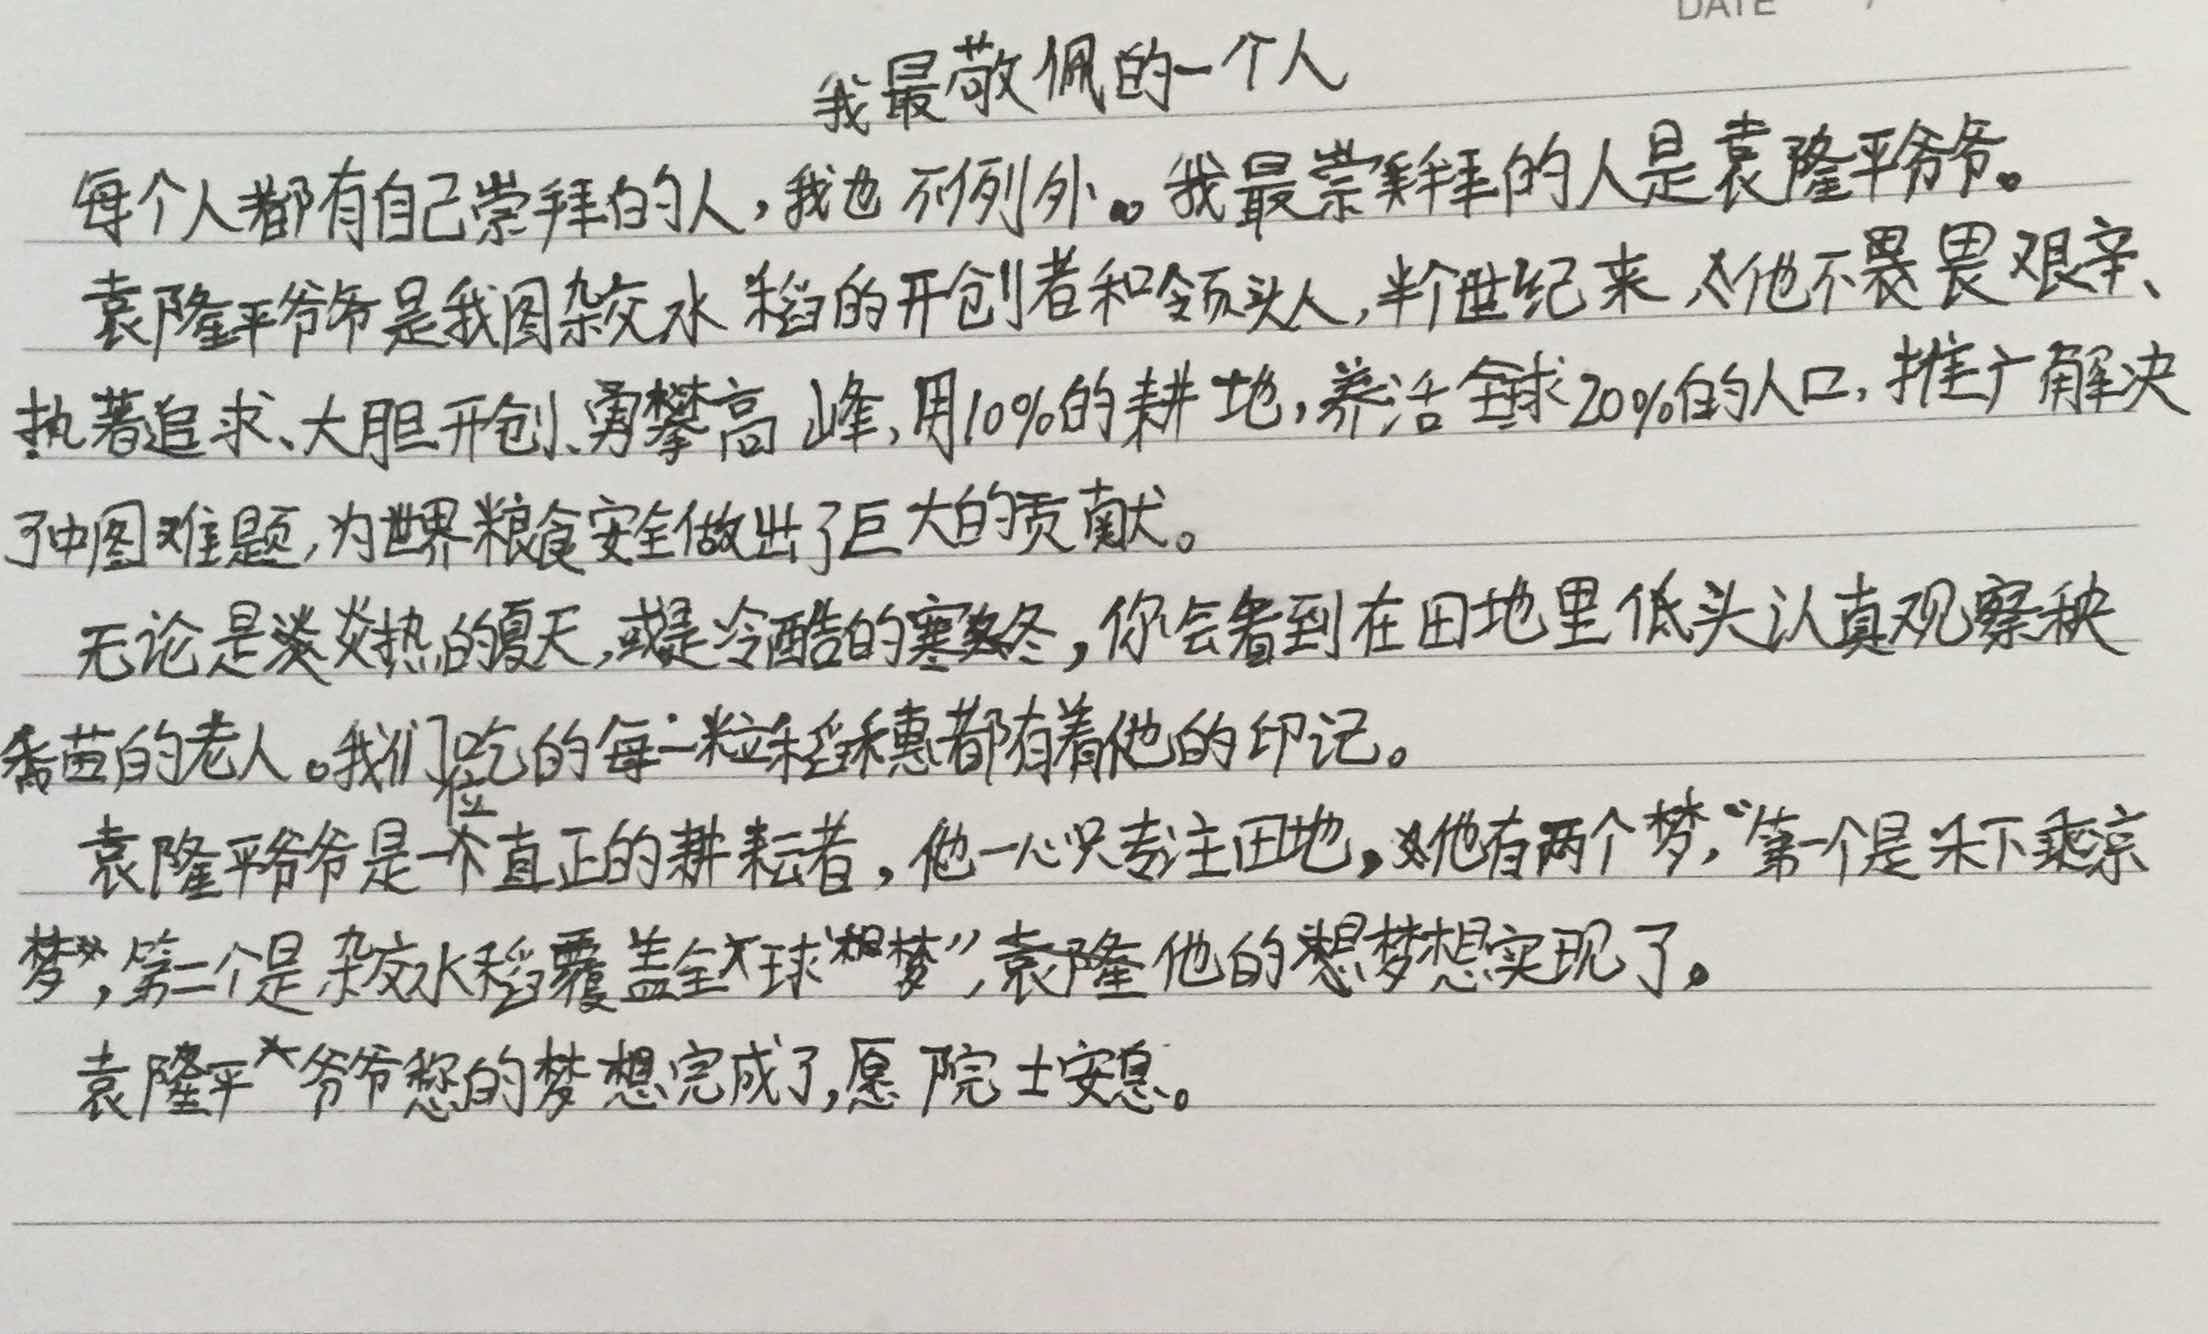 DATE
我最敬佩的一个人
每个人都有自己崇拜的人，我也不例外。我最崇拜的人是袁隆平爷爷。
袁隆平爷爷是我国杂交水稻的开创者和领头人，半个世纪来他不畏艰辛、
执著追求、大胆开创、勇攀高峰，用10%的耕地，养活全球20%的人口，推广解决
了中国难题，为世界粮食安全做出了巨大的贡献。
无论是炎热的夏天，或是冷酷的寒冬，你会看到在田地里低头认真观察秧
苗的老人。我们吃的每一粒稻穗都有着他的印记。
袁隆平爷爷是一位真正的耕耘者，他一心只专注田地，他有两个梦，“第一个是禾下乘凉
梦”，第二个是杂交水稻覆盖全球“梦”，袁隆他的梦想实现了。
袁隆平爷爷您的梦想完成了，愿院士安息。